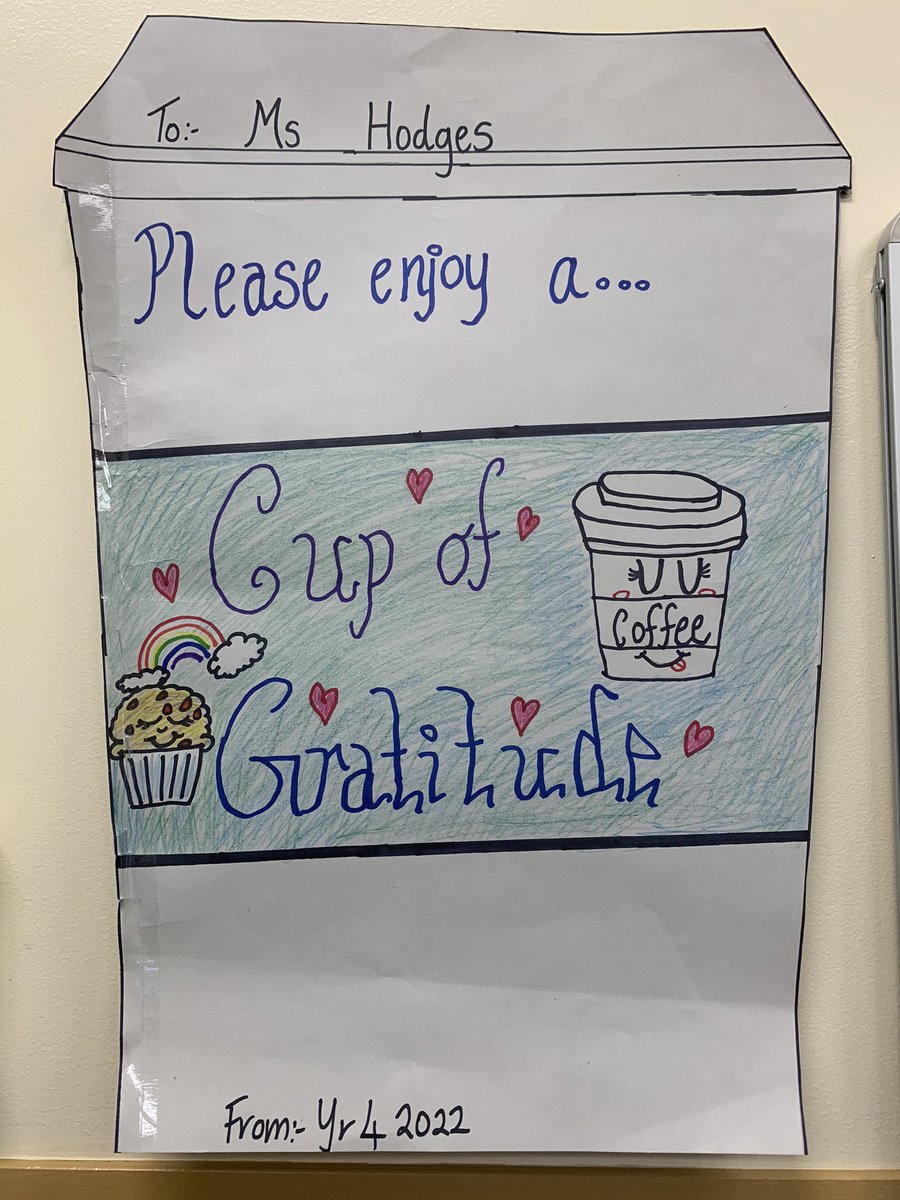 To:- Ms Hodges
Please enjoy a...
Cup of
Coffee
Gratitude
From:- Yr 4 2022